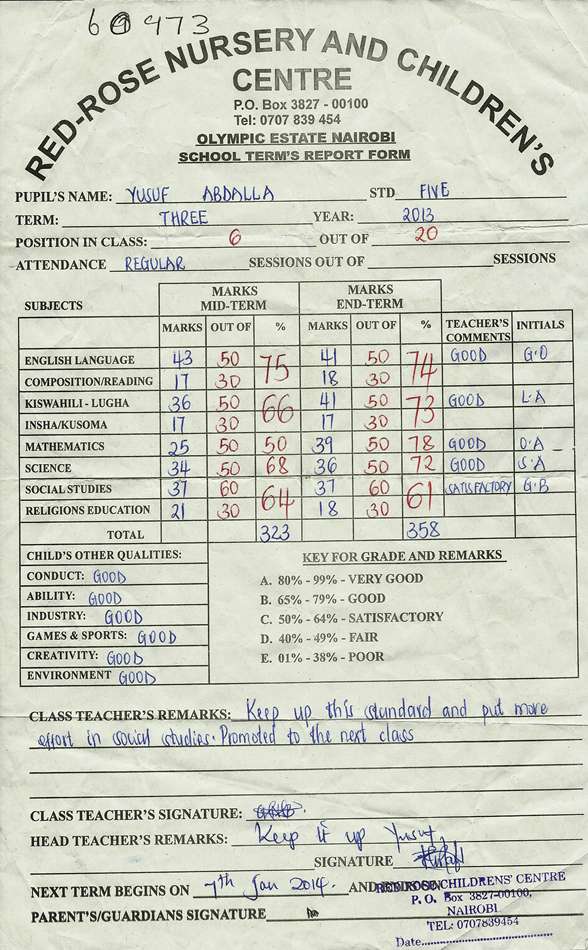 6 9 973
RED-ROSE NURSERY AND CHILDREN'S
CENTRE
P.O. Box 3827 - 00100
Tel: 0707 839 454
OLYMPIC ESTATE NAIROBI
SCHOOL TERM'S REPORT FORM
PUPIL'S NAME: YUSUF ABDALLA STD FIVE
TERM: THREE YEAR: 2013
POSITION IN CLASS: 6 OUT OF 20
ATTENDANCE REGULAR SESSIONS OUT OF SESSIONS
SUBJECTS MARKS MID-TERM MARKS END-TERM
MARKS OUT OF % MARKS OUT OF % TEACHER'S COMMENTS INITIALS
ENGLISH LANGUAGE 43 50 75 41 50 74 GOOD G.O
COMPOSITION/READING 17 30 18 30
KISWAHILI - LUGHA 36 50 66 41 50 73 GOOD L.A
INSHA/KUSOMA 17 30 17 30
MATHEMATICS 25 50 50 39 50 78 GOOD O.A
SCIENCE 34 50 68 36 50 72 GOOD S.A
SOCIAL STUDIES 37 60 64 37 60 61 SATISFACTORY G.B
RELIGIONS EDUCATION 21 30 18 30
TOTAL 323 358
CHILD'S OTHER QUALITIES:
CONDUCT: GOOD
ABILITY: GOOD
INDUSTRY: GOOD
GAMES & SPORTS: GOOD
CREATIVITY: GOOD
ENVIRONMENT GOOD
KEY FOR GRADE AND REMARKS
A. 80% - 99% - VERY GOOD
B. 65% - 79% - GOOD
C. 50% - 64% - SATISFACTORY
D. 40% - 49% - FAIR
E. 01% - 38% - POOR
CLASS TEACHER'S REMARKS: Keep up this standard and put more
effort in social studies. Promoted to the next class
CLASS TEACHER'S SIGNATURE:
HEAD TEACHER'S REMARKS: Keep it up Yusuf
SIGNATURE
NEXT TERM BEGINS ON 7th Jan 2014. AND
PARENT'S/GUARDIANS SIGNATURE
CHILDRENS' CENTRE
P. O. Box 3827-00100,
NAIROBI
TEL: 0707839454
Date